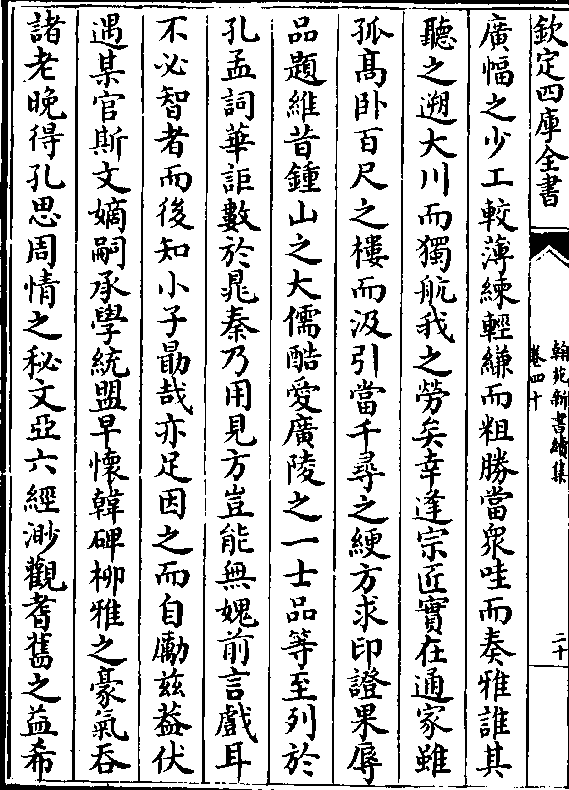 欽定四庫全書
翰苑新書續集
卷四十
二十
廣幅之少工較薄練輕縑而粗勝當衆哇而奏雅誰其
聽之遡大川而獨航我之勞矣幸逢宗匠實在通家雖
孤高卧百尺之樓而汲引當千尋之綆方求印證果辱
品題維昔鍾山之大儒酷愛廣陵之一士品等至列於
孔孟詞華詎數於晁秦乃用見方豈能無媿前言戲耳
不必智者而後知小子勗哉亦足因之而自勵兹葢伏
遇某官斯文嫡嗣承學統盟早懷韓碑柳雅之豪氣吞
諸老晚得孔思周情之秘文亞六經渺觀耆舊之益希